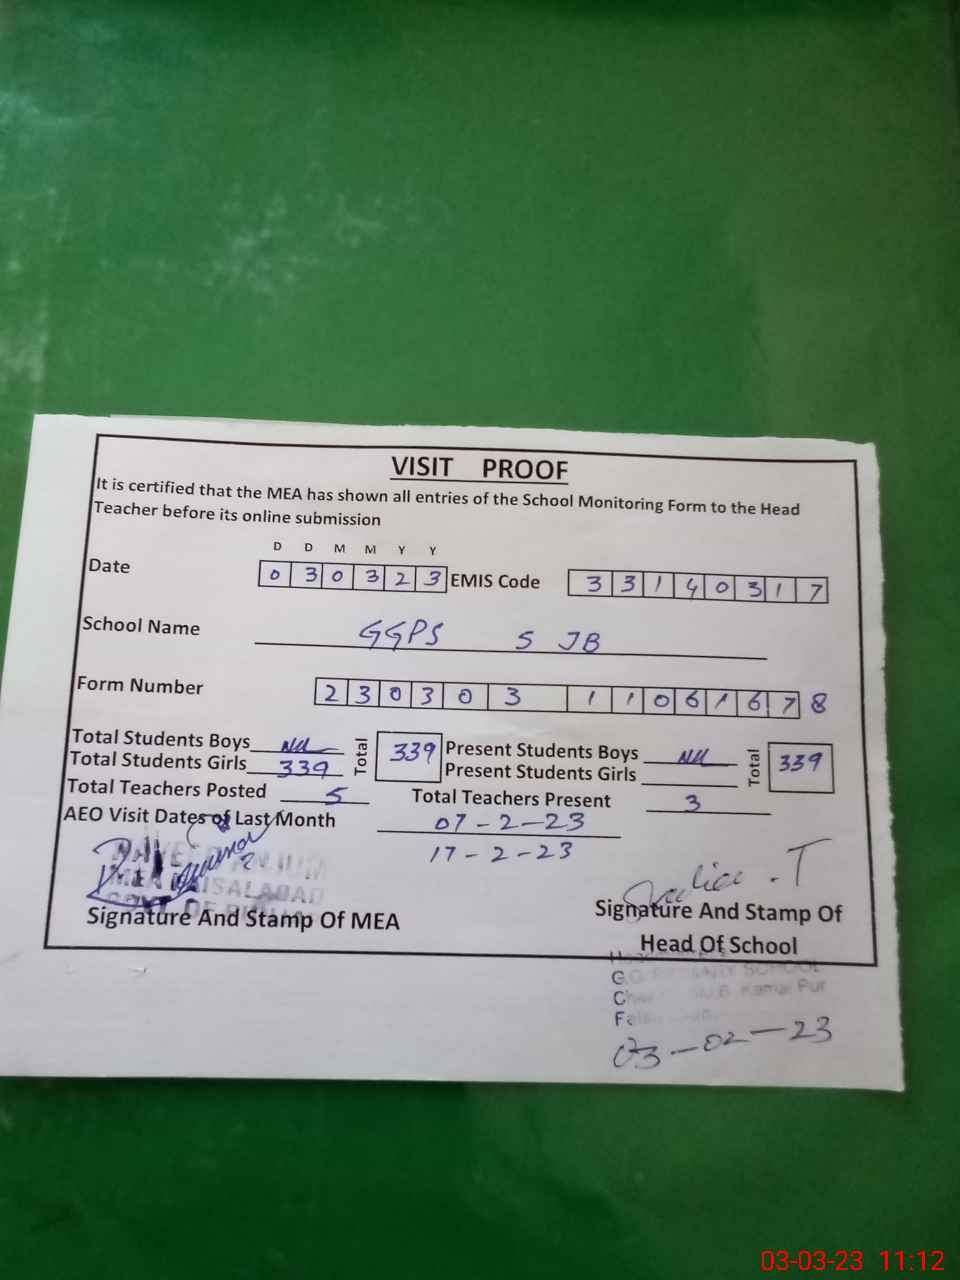 VISIT PROOF
It is certified that the MEA has shown all entries of the School Monitoring Form to the Head
Teacher before its online submission
D D M M Y Y
Date 0 3 0 3 2 3 EMIS Code 3 3 1 4 0 3 1 7
School Name GGPS 5 JB
Form Number 2 3 0 3 0 3 1 1 0 6 1 6 7 8
Total Students Boys Nil Total 339 Present Students Boys Nil Total 339
Total Students Girls 339 Present Students Girls
Total Teachers Posted 5 Total Teachers Present 3
AEO Visit Dates of Last Month 07-2-23
17-2-23
MEA FAISALABAD
Signature And Stamp Of MEA
Signature And Stamp Of
Head Of School
SCHOOL
Kamal Pur
03-02-23
03-03-23 11:12